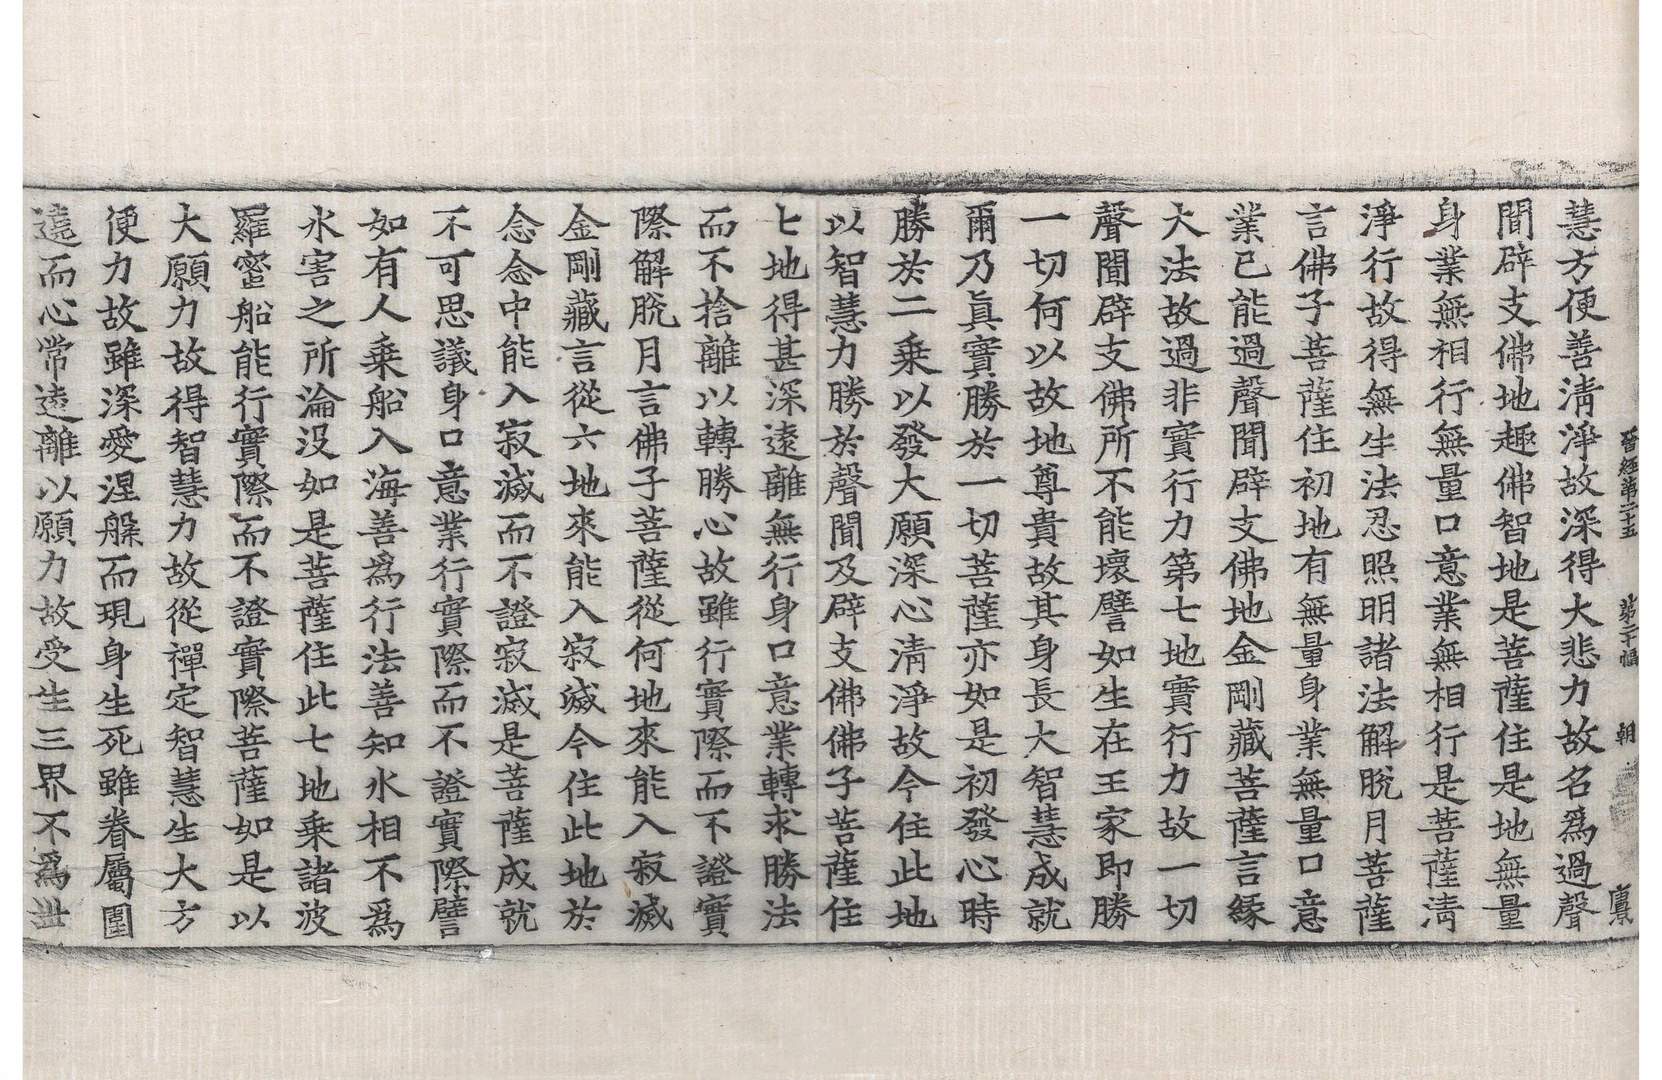 晉經第二十五 第二十幅 朝 慶
慧方便善淸淨故深得大悲力故名爲過聲
聞辟支佛地趣佛智地是菩薩住是地無量
身業無相行無量口意業無相行是菩薩淸
淨行故得無生法忍照明諸法解脫月菩薩
言佛子菩薩住初地有無量身業無量口意
業已能過聲聞辟支佛地金剛藏菩薩言緣
大法故過非實行力第七地實行力故一切
聲聞辟支佛所不能壞譬如生在王家即勝
一切何以故地尊貴故其身長大智慧成就
爾乃眞實勝於一切菩薩亦如是初發心時
勝於二乘以發大願深心淸淨故今住此地
以智慧力勝於聲聞及辟支佛佛子菩薩住
七地得甚深遠離無行身口意業轉求勝法
而不捨離以轉勝心故雖行實際而不證實
際解脫月言佛子菩薩從何地來能入寂滅
金剛藏言從六地來能入寂滅今住此地於
念念中能入寂滅而不證寂滅是菩薩成就
不可思議身口意業行實際而不證實際譬
如有人乘船入海善爲行法善知水相不爲
水害之所淪没如是菩薩住此七地乘諸波
羅蜜船能行實際而不證實際菩薩如是以
大願力故得智慧力故從禪定智慧生大方
便力故雖深愛涅槃而現身生死雖眷屬圍
遶而心常遠離以願力故受生三界不爲世